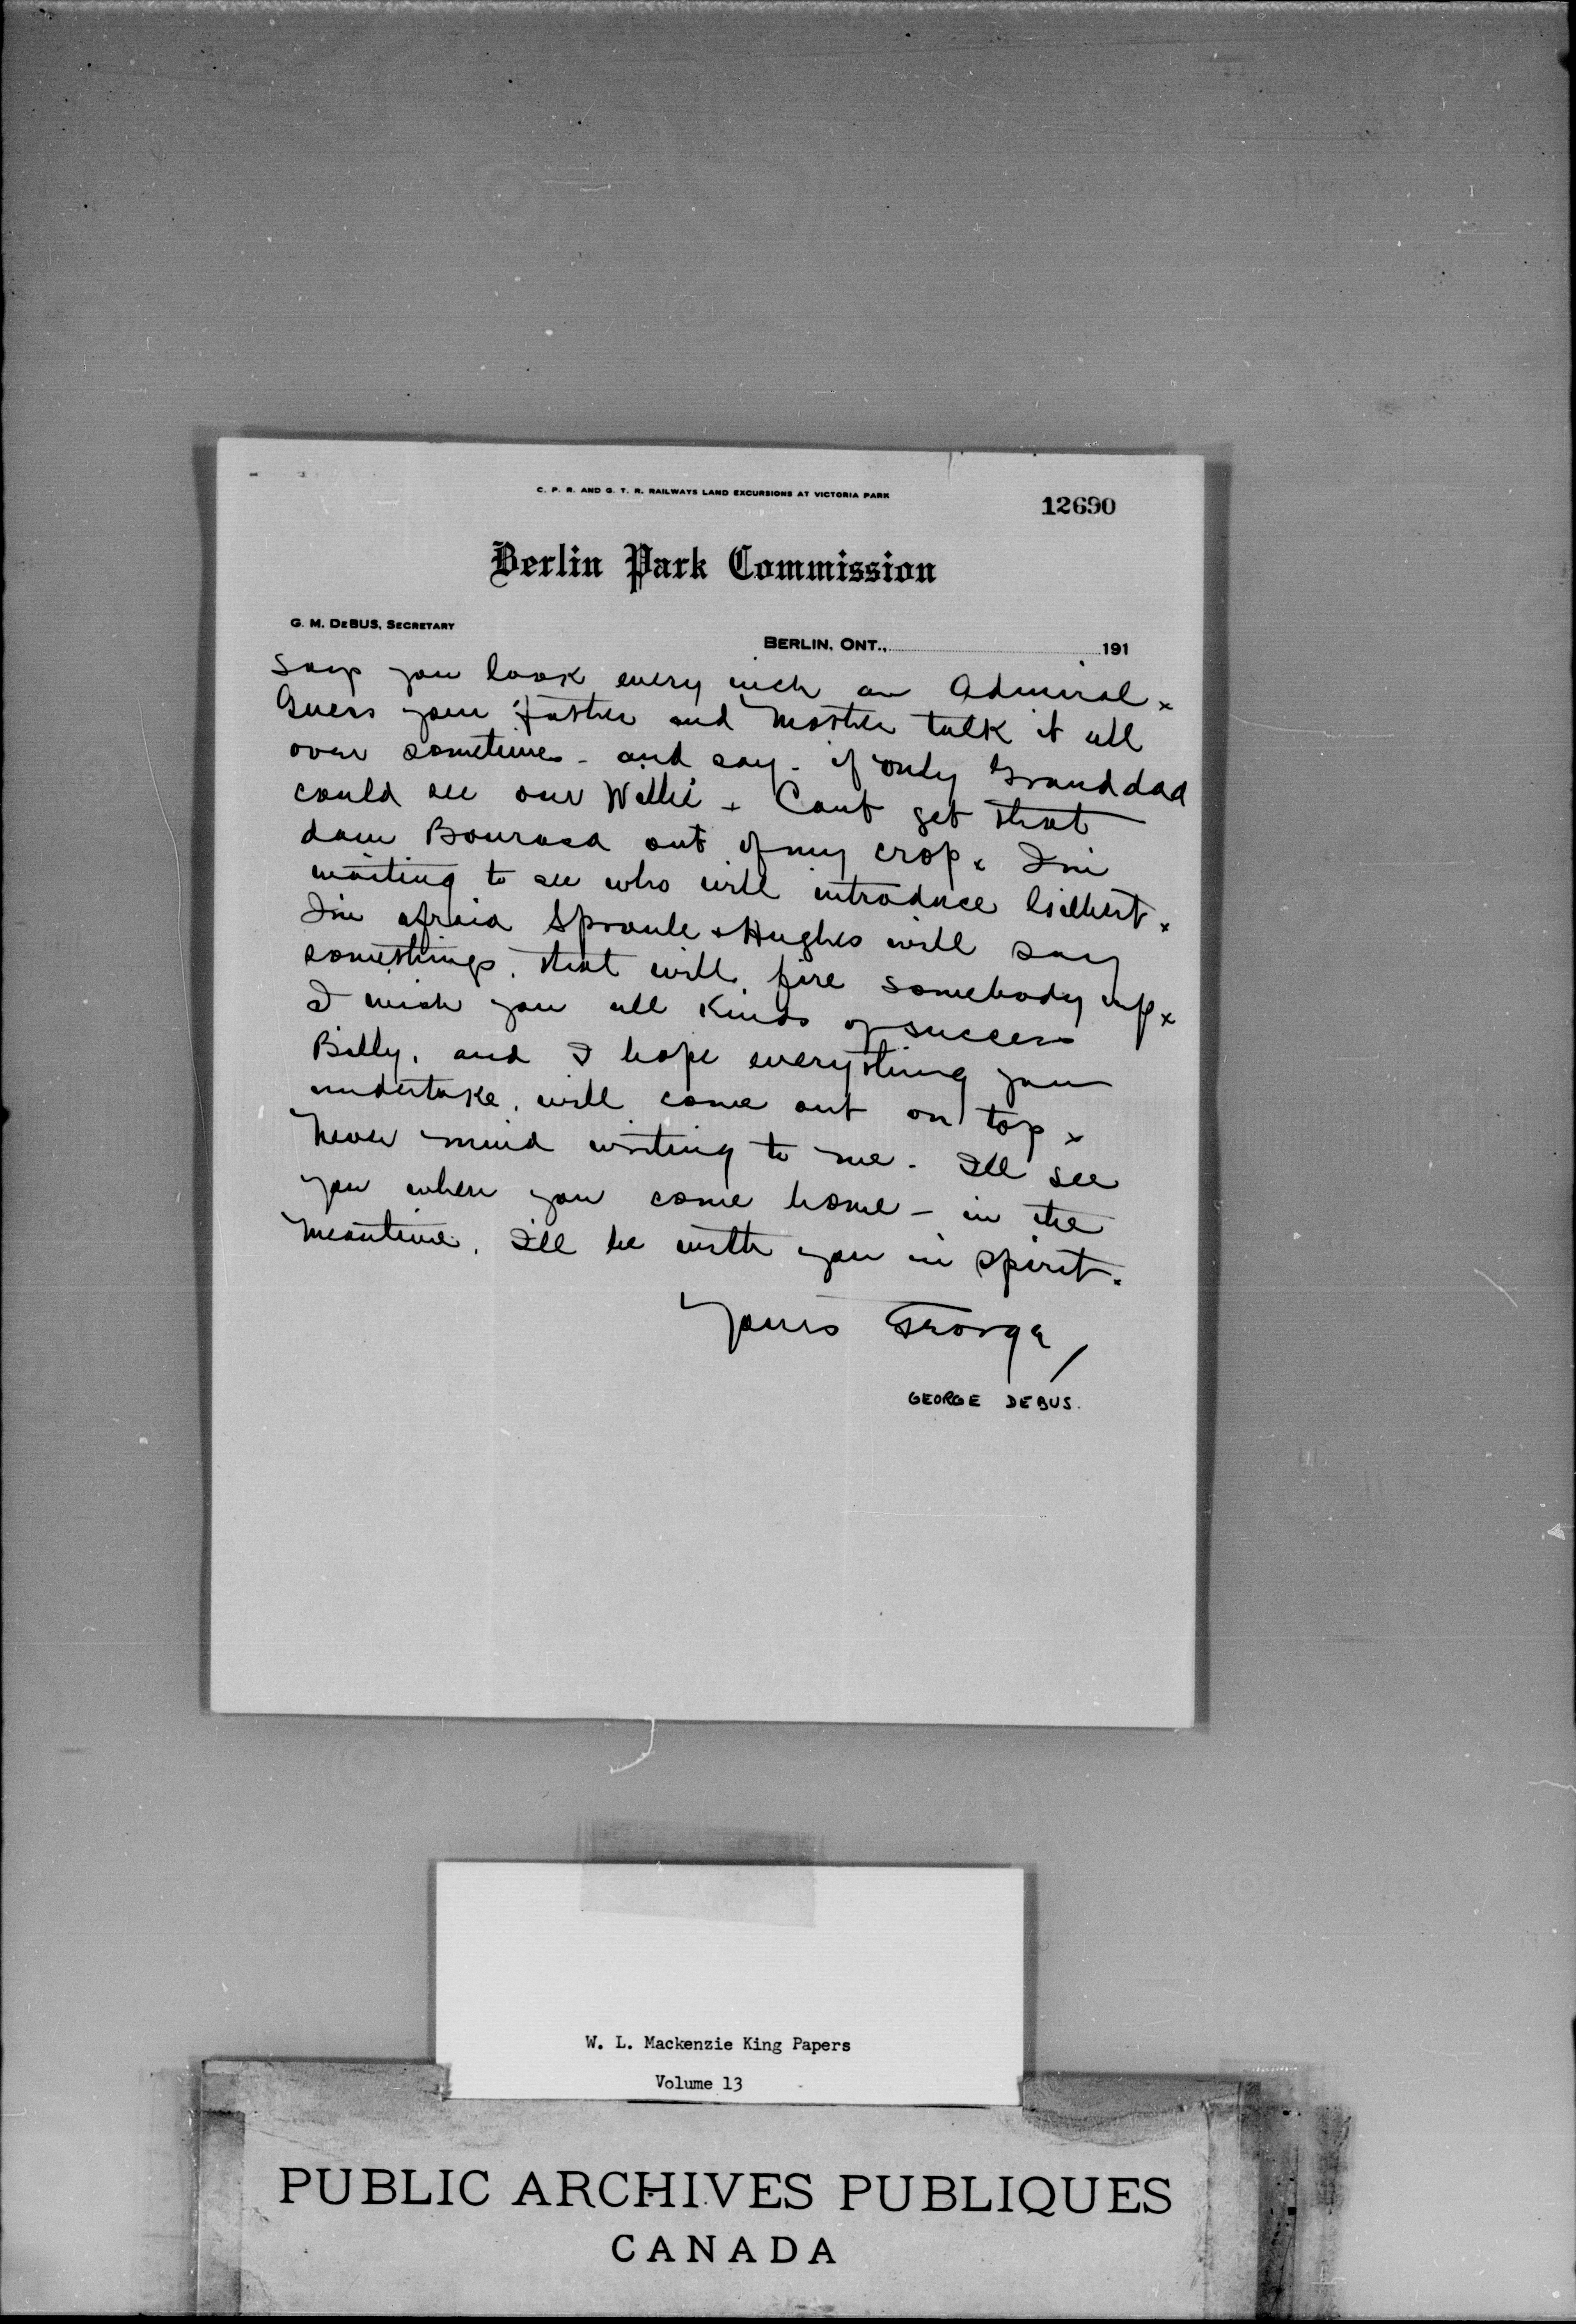 C. P. R. AND G. T. R. RAILWAYS LAND EXCURSIONS AT VICTORIA PARK
12690
Berlin Park Commission
G. M. DEBUS, SECRETARY
BERLIN, ONT., 191
says you look every inch an Admiral x
Guess your father and Mother talk it all
over sometimes - and say - if only Granddad
could see our Willie x Cant get that
dam Bourasa out of my crop x I'm
waiting to see who will introduce Gilbert x
I'm afraid Sproule & Hughes will say
somethings, that will, fire somebody up x
I wish you all kinds of success
Billy, and I hope everything you
undertake, will come out on top x
Never mind writing to me - Ill see
you when you come home - in the
meantime, I'll be with you in spirit.
Yours George
GEORGE DEBUS.
W. L. Mackenzie King Papers
Volume 13
PUBLIC ARCHIVES PUBLIQUES
CANADA